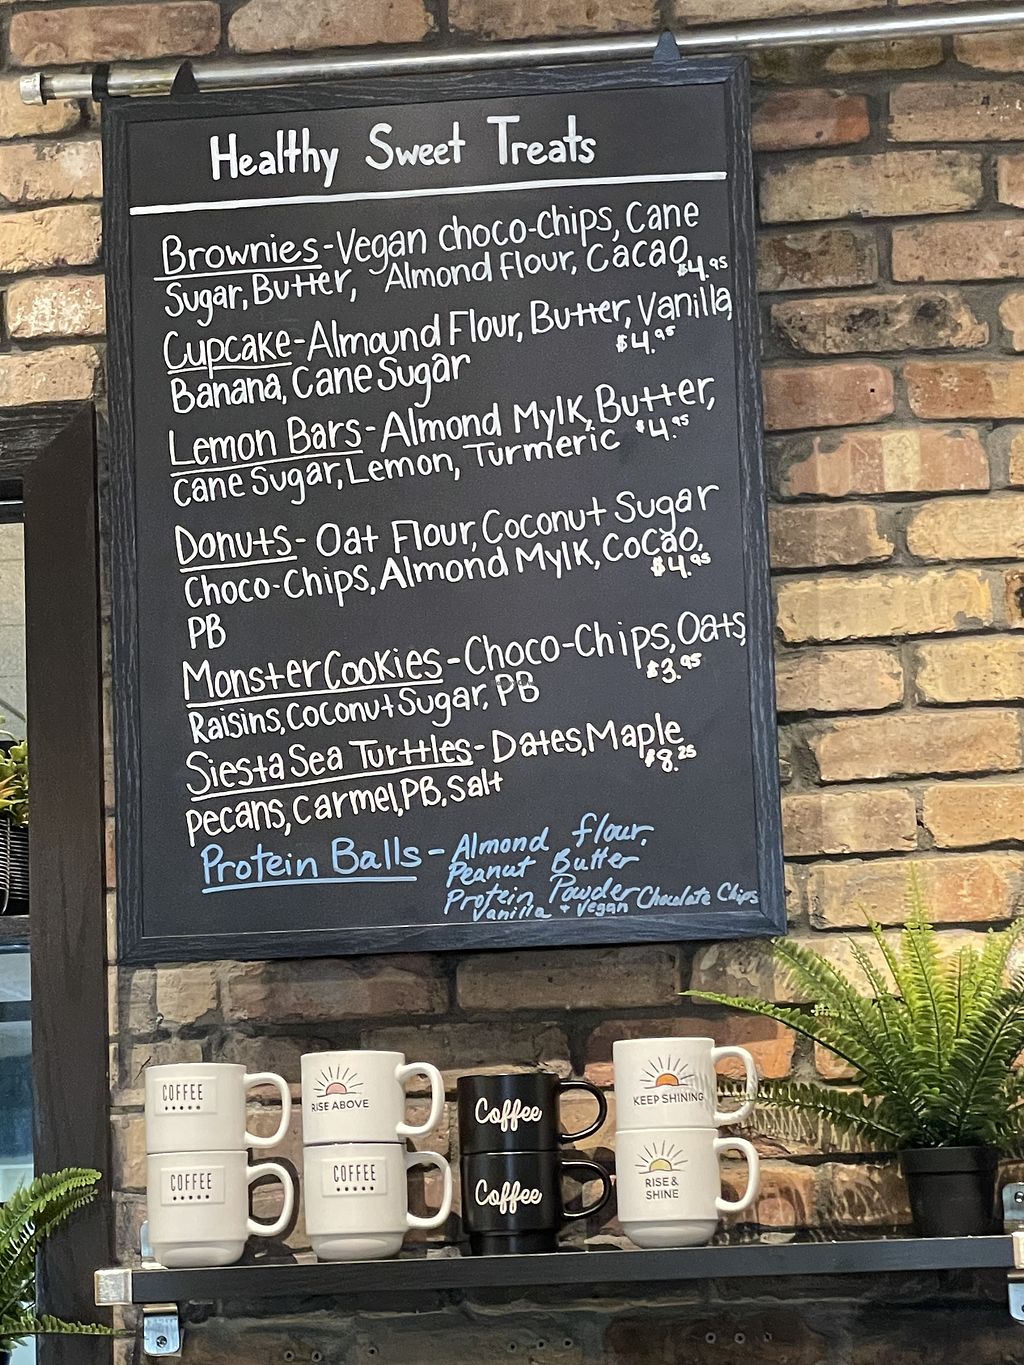 Healthy Sweet Treats
Brownies-Vegan choco-chips, Cane
Sugar, Butter, Almond Flour, Cacao, $4.95
Cupcake-Almound Flour, Butter, Vanilla,
Banana, Cane Sugar $4.95
Lemon Bars-Almond Mylk, Butter,
Cane Sugar, Lemon, Turmeric $4.95
Donuts- Oat Flour, Coconut Sugar
Choco-Chips, Almond Mylk, CoCao,
PB $4.95
Monster Cookies-Choco-Chips, Oats,
Raisins, Coconut Sugar, PB $3.95
Siesta Sea Turttles-Dates, Maple
Pecans, Carmel, PB, Salt $8.25
Protein Balls- Almond flour,
Peanut Butter
Protein Powder Chocolate Chips
Vanilla + Vegan
COFFEE
RISE ABOVE
Coffee
KEEP SHINING
COFFEE
COFFEE
Coffee
RISE &
SHINE